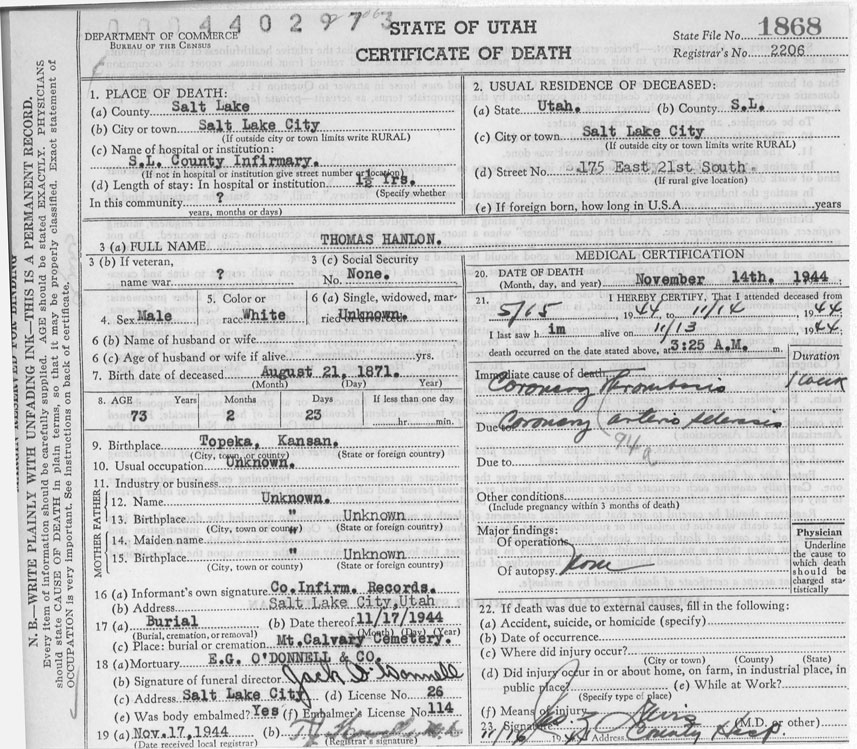 44029773
DEPARTMENT OF COMMERCE
BUREAU OF THE CENSUS
STATE OF UTAH
CERTIFICATE OF DEATH
State File No. 1868
Registrar's No. 2206
N. B.—WRITE PLAINLY WITH UNFADING INK—THIS IS A PERMANENT RECORD.
Every item of information should be carefully supplied. AGE should be stated EXACTLY. PHYSICIANS
should state CAUSE OF DEATH in plain terms, so that it may be properly classified. Exact statement of
OCCUPATION is very important. See instructions on back of certificate.
1. PLACE OF DEATH:
(a) County Salt Lake
(b) City or town Salt Lake City
(If outside city or town limits write RURAL)
(c) Name of hospital or institution:
S.L. County Infirmary.
(If not in hospital or institution give street number or location)
(d) Length of stay: In hospital or institution 1½ Yrs.
(Specify whether
In this community ?
years, months or days)
2. USUAL RESIDENCE OF DECEASED:
(a) State Utah. (b) County S.L.
(c) City or town Salt Lake City
(If outside city or town limits write RURAL)
(d) Street No. 175 East 21st South
(If rural give location)
(e) If foreign born, how long in U.S.A. years
3 (a) FULL NAME THOMAS HANLON.
3 (b) If veteran, name war ?
3 (c) Social Security No. None.
4. Sex Male
5. Color or race White
6 (a) Single, widowed, married or divorced Unknown.
6 (b) Name of husband or wife
6 (c) Age of husband or wife if alive yrs.
7. Birth date of deceased August 21, 1871.
(Month) (Day) (Year)
8. AGE Years Months Days If less than one day
73 2 23 hr. min.
9. Birthplace Topeka, Kansan.
(City, town, or county) (State or foreign country)
10. Usual occupation Unknown.
11. Industry or business
FATHER
12. Name Unknown.
13. Birthplace " Unknown
(City, town or county) (State or foreign country)
MOTHER
14. Maiden name "
15. Birthplace " Unknown
(City, town or county) (State or foreign country)
16 (a) Informant's own signature Co.Infirm. Records.
(b) Address Salt Lake City, Utah
17 (a) Burial (b) Date thereof 11/17/1944
(Burial, cremation, or removal) (Month) (Day) (Year)
(c) Place: burial or cremation Mt.Calvary Cemetery.
18 (a) Mortuary E.G. O'DONNELL & CO.
(b) Signature of funeral director Jack O'Donnell
(c) Address Salt Lake City (d) License No. 26
(e) Was body embalmed? Yes (f) Embalmer's License No. 114
19 (a) Nov.17,1944 (b)
(Date received local registrar) (Registrar's signature)
MEDICAL CERTIFICATION
20. DATE OF DEATH
(Month, day, and year) November 14th. 1944
21. I HEREBY CERTIFY, That I attended deceased from
5/15, 1944 to 11/14 1944
I last saw h im alive on 11/13 1944
death occurred on the date stated above, at 3:25 A.M. m.
Duration
Immediate cause of death
Coronary Thrombosis 1 week
Due to Coronary arterio sclerosis
94a
Due to
Other conditions
(Include pregnancy within 3 months of death)
Major findings:
Of operation
Of autopsy None
Physician
Underline the cause to which death should be charged statistically
22. If death was due to external causes, fill in the following:
(a) Accident, suicide, or homicide (specify)
(b) Date of occurrence
(c) Where did injury occur?
(City or town) (County) (State)
(d) Did injury occur in or about home, on farm, in industrial place, in
public place? (e) While at Work?
(Specify type of place)
(f) Means of injury
23. Signature (M.D. or other)
11/16 1944 Address County Hosp